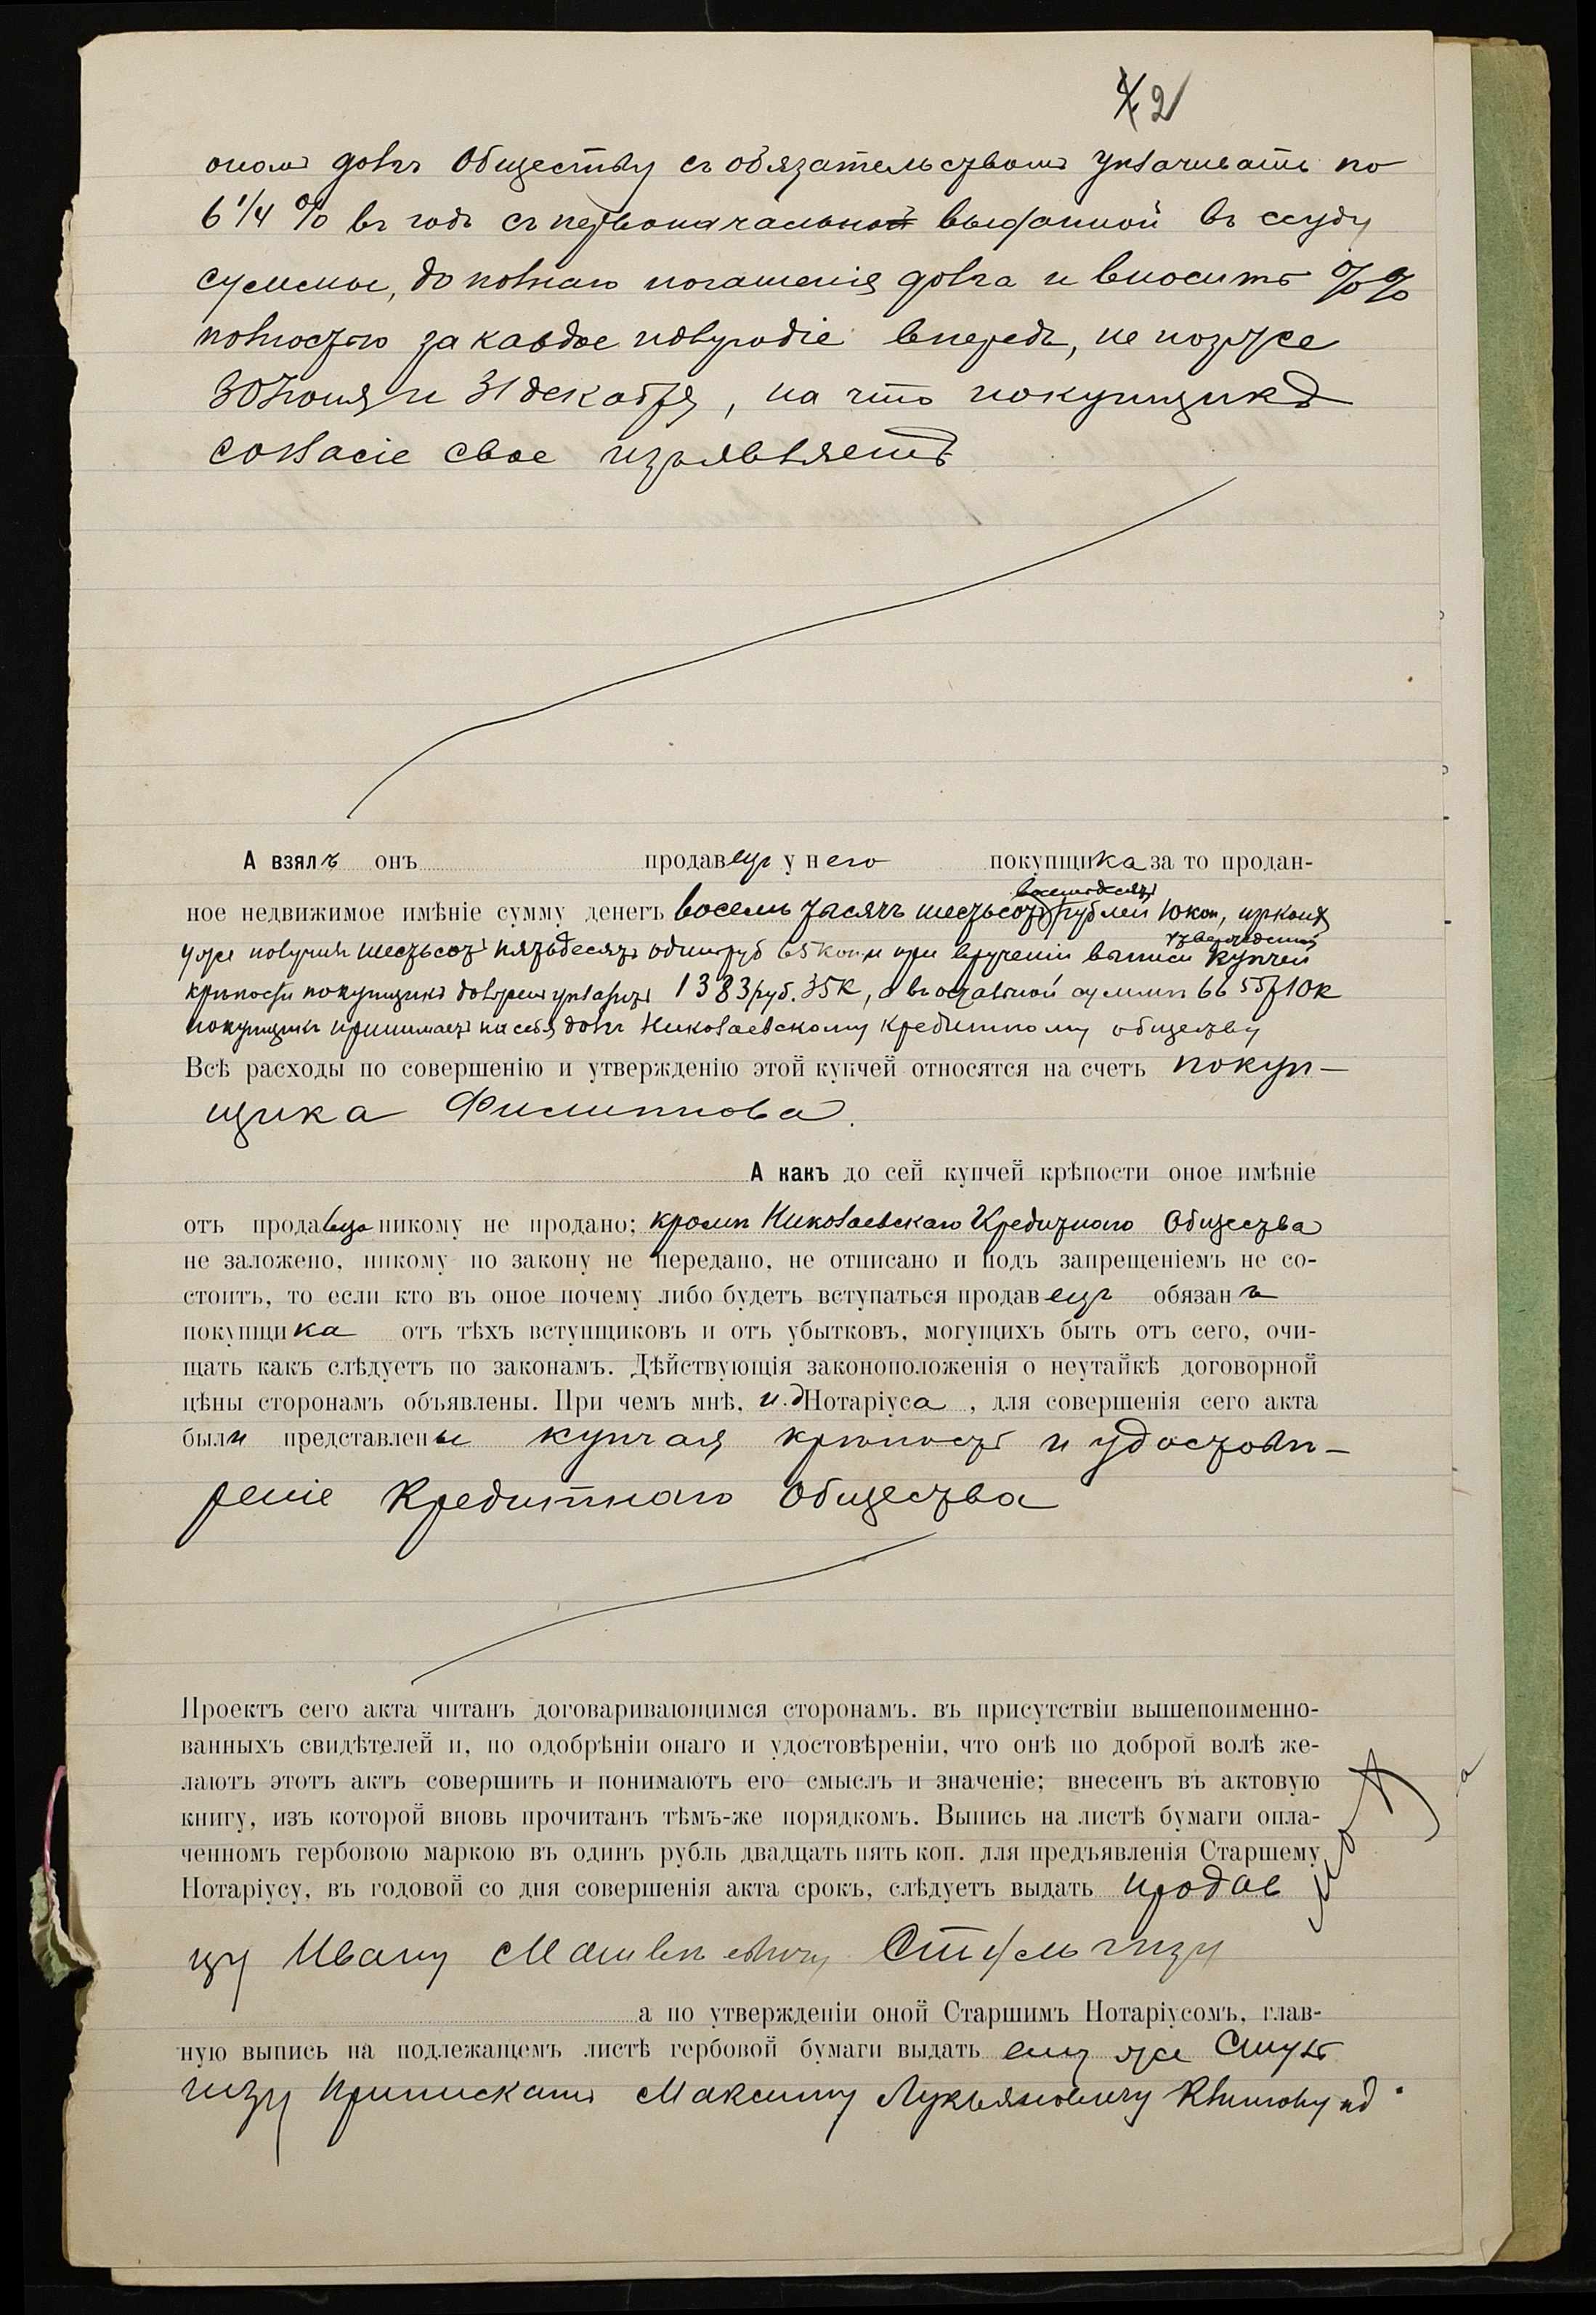 2
ономъ долгъ Обществу съ обязательствомъ уплачивать по
6 1/4 % въ годъ съ первоначальной выданной въ ссуду
суммы, до полнаго погашенія долга и вносить %%
полностью за каждое полугодіе впередъ, не позже
30 Іюня и 31 декабря, на что покупщикъ
согласіе свое изъявляетъ
А взялъ онъ продавецъ у него покупщика за то продан-
восемьдесятъ
ное недвижимое имѣніе сумму денегъ восемь тысячъ шестьсотъ рублей 10 коп, изъ коихъ
утвержденной
уже получилъ шестьсотъ пятьдесятъ одинъ руб 65 коп и при врученіи выписи купчей
крѣпости покупщикъ долженъ уплатить 1383 руб. 35 к, а въ остальной суммѣ 6655 р 10 к
покупщикъ принимаетъ на себя долгъ Николаевскому Кредитному обществу
Всѣ расходы по совершенію и утвержденію этой купчей относятся на счетъ покуп-
щика Филиппова.
А какъ до сей купчей крѣпости оное имѣніе
отъ продавца никому не продано; кромѣ Николаевскаго Кредитнаго Общества
не заложено, никому по закону не передано, не отписано и подъ запрещеніемъ не со-
стоитъ, то если кто въ оное почему либо будетъ вступаться продавецъ обязанъ
покупщика отъ тѣхъ вступщиковъ и отъ убытковъ, могущихъ быть отъ сего, очи-
щать какъ слѣдуетъ по законамъ. Дѣйствующія законоположенія о неутайкѣ договорной
цѣны сторонамъ объявлены. При чемъ мнѣ, и.д Нотаріуса, для совершенія сего акта
были представлены купчая крѣпость и удостовѣ-
реніе Кредитнаго Общества
Проектъ сего акта читанъ договаривающимся сторонамъ. въ присутствіи вышепоименно-
ванныхъ свидѣтелей и, по одобрѣніи онаго и удостовѣреніи, что онѣ по доброй волѣ же-
лаютъ этотъ актъ совершить и понимаютъ его смыслъ и значеніе; внесенъ въ актовую
книгу, изъ которой вновь прочитанъ тѣмъ-же порядкомъ. Выпись на листѣ бумаги опла-
ченномъ гербовою маркою въ одинъ рубль двадцать пять коп. для предъявленія Старшему
Нотаріусу, въ годовой со дня совершенія акта срокъ, слѣдуетъ выдать продав
цу Ивану Матвѣевичу
а по утвержденіи оной Старшимъ Нотаріусомъ, глав-
ную выпись на подлежащемъ листѣ гербовой бумаги выдать ему же
Максиму Лукьяновичу Климову